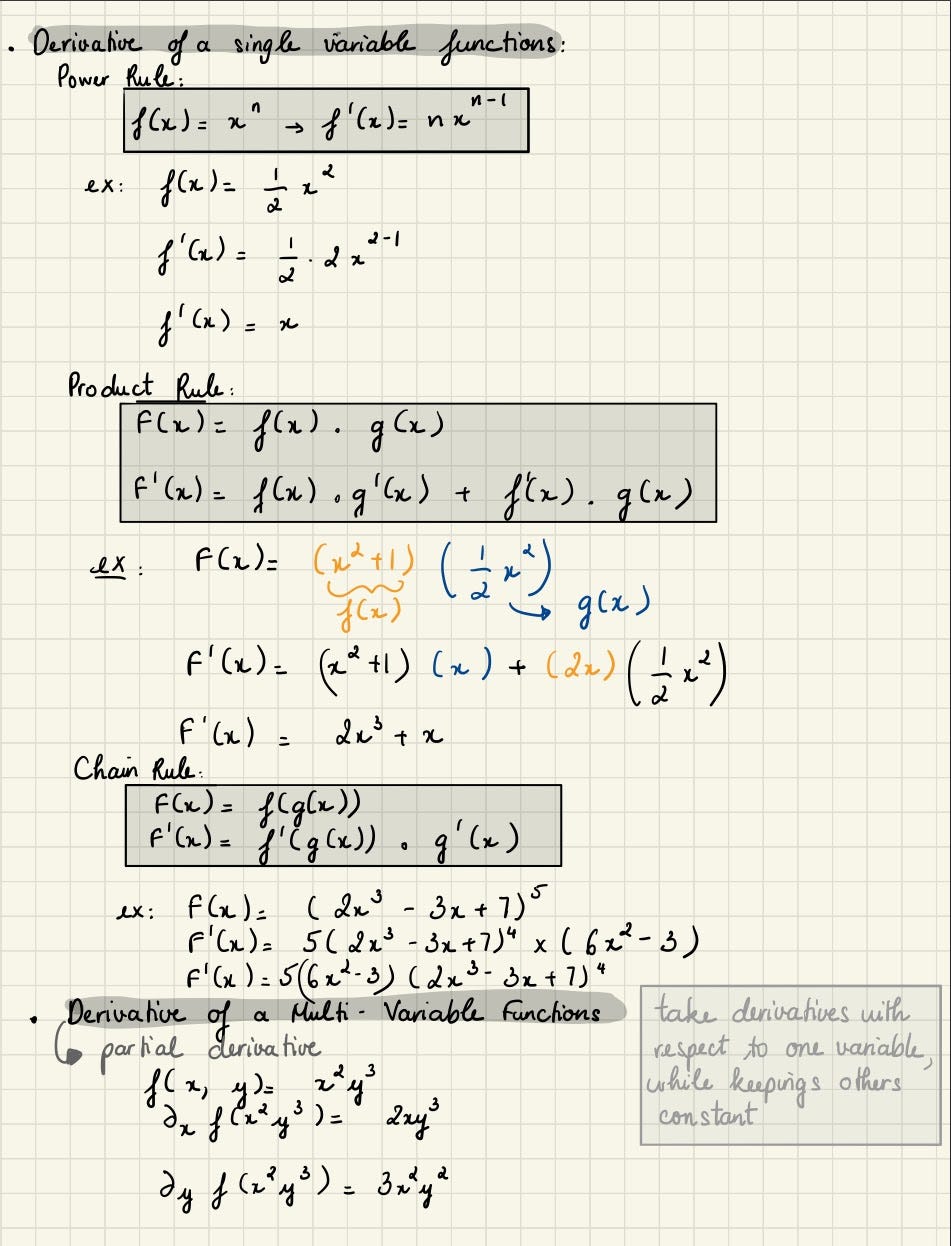 . Derivative of a single variable functions:
Power Rule:
f(x) = xⁿ → f'(x) = n xⁿ⁻¹
ex: f(x) = 1/2 x²
f'(x) = 1/2 . 2 x²⁻¹
f'(x) = x
Product Rule:
F(x) = f(x) . g(x)
F'(x) = f(x) . g'(x) + f'(x) . g(x)
ex: F(x) = (x² + 1) (1/2 x²)
f(x) → g(x)
F'(x) = (x² + 1) (x) + (2x) (1/2 x²)
F'(x) = 2x³ + x
Chain Rule:
F(x) = f(g(x))
F'(x) = f'(g(x)) . g'(x)
ex: F(x) = (2x³ - 3x + 7)⁵
F'(x) = 5(2x³ - 3x + 7)⁴ × (6x² - 3)
F'(x) = 5(6x² - 3) (2x³ - 3x + 7)⁴
. Derivative of a Multi-Variable Functions
↳ partial derivative
f(x, y) = x²y³
∂x f(x²y³) = 2xy³
∂y f(x²y³) = 3x²y²
take derivatives with
respect to one variable,
while keepings others
constant